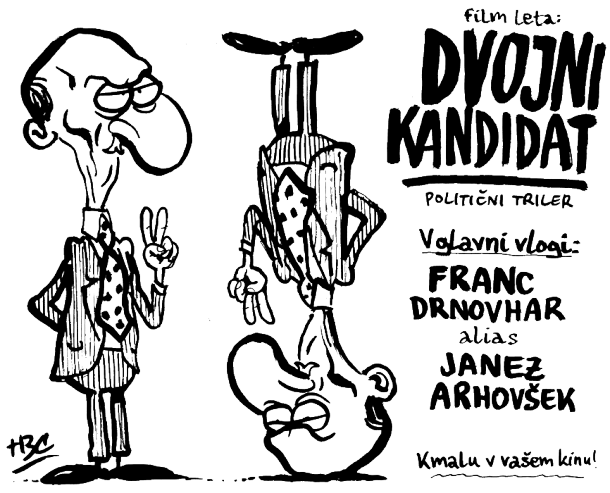 film leta:
DVOJNI
KANDIDAT
POLITIČNI TRILER
V glavni vlogi:
FRANC
DRNOVHAR
alias
JANEZ
ARHOVŠEK
Kmalu v vašem kinu!
HBC